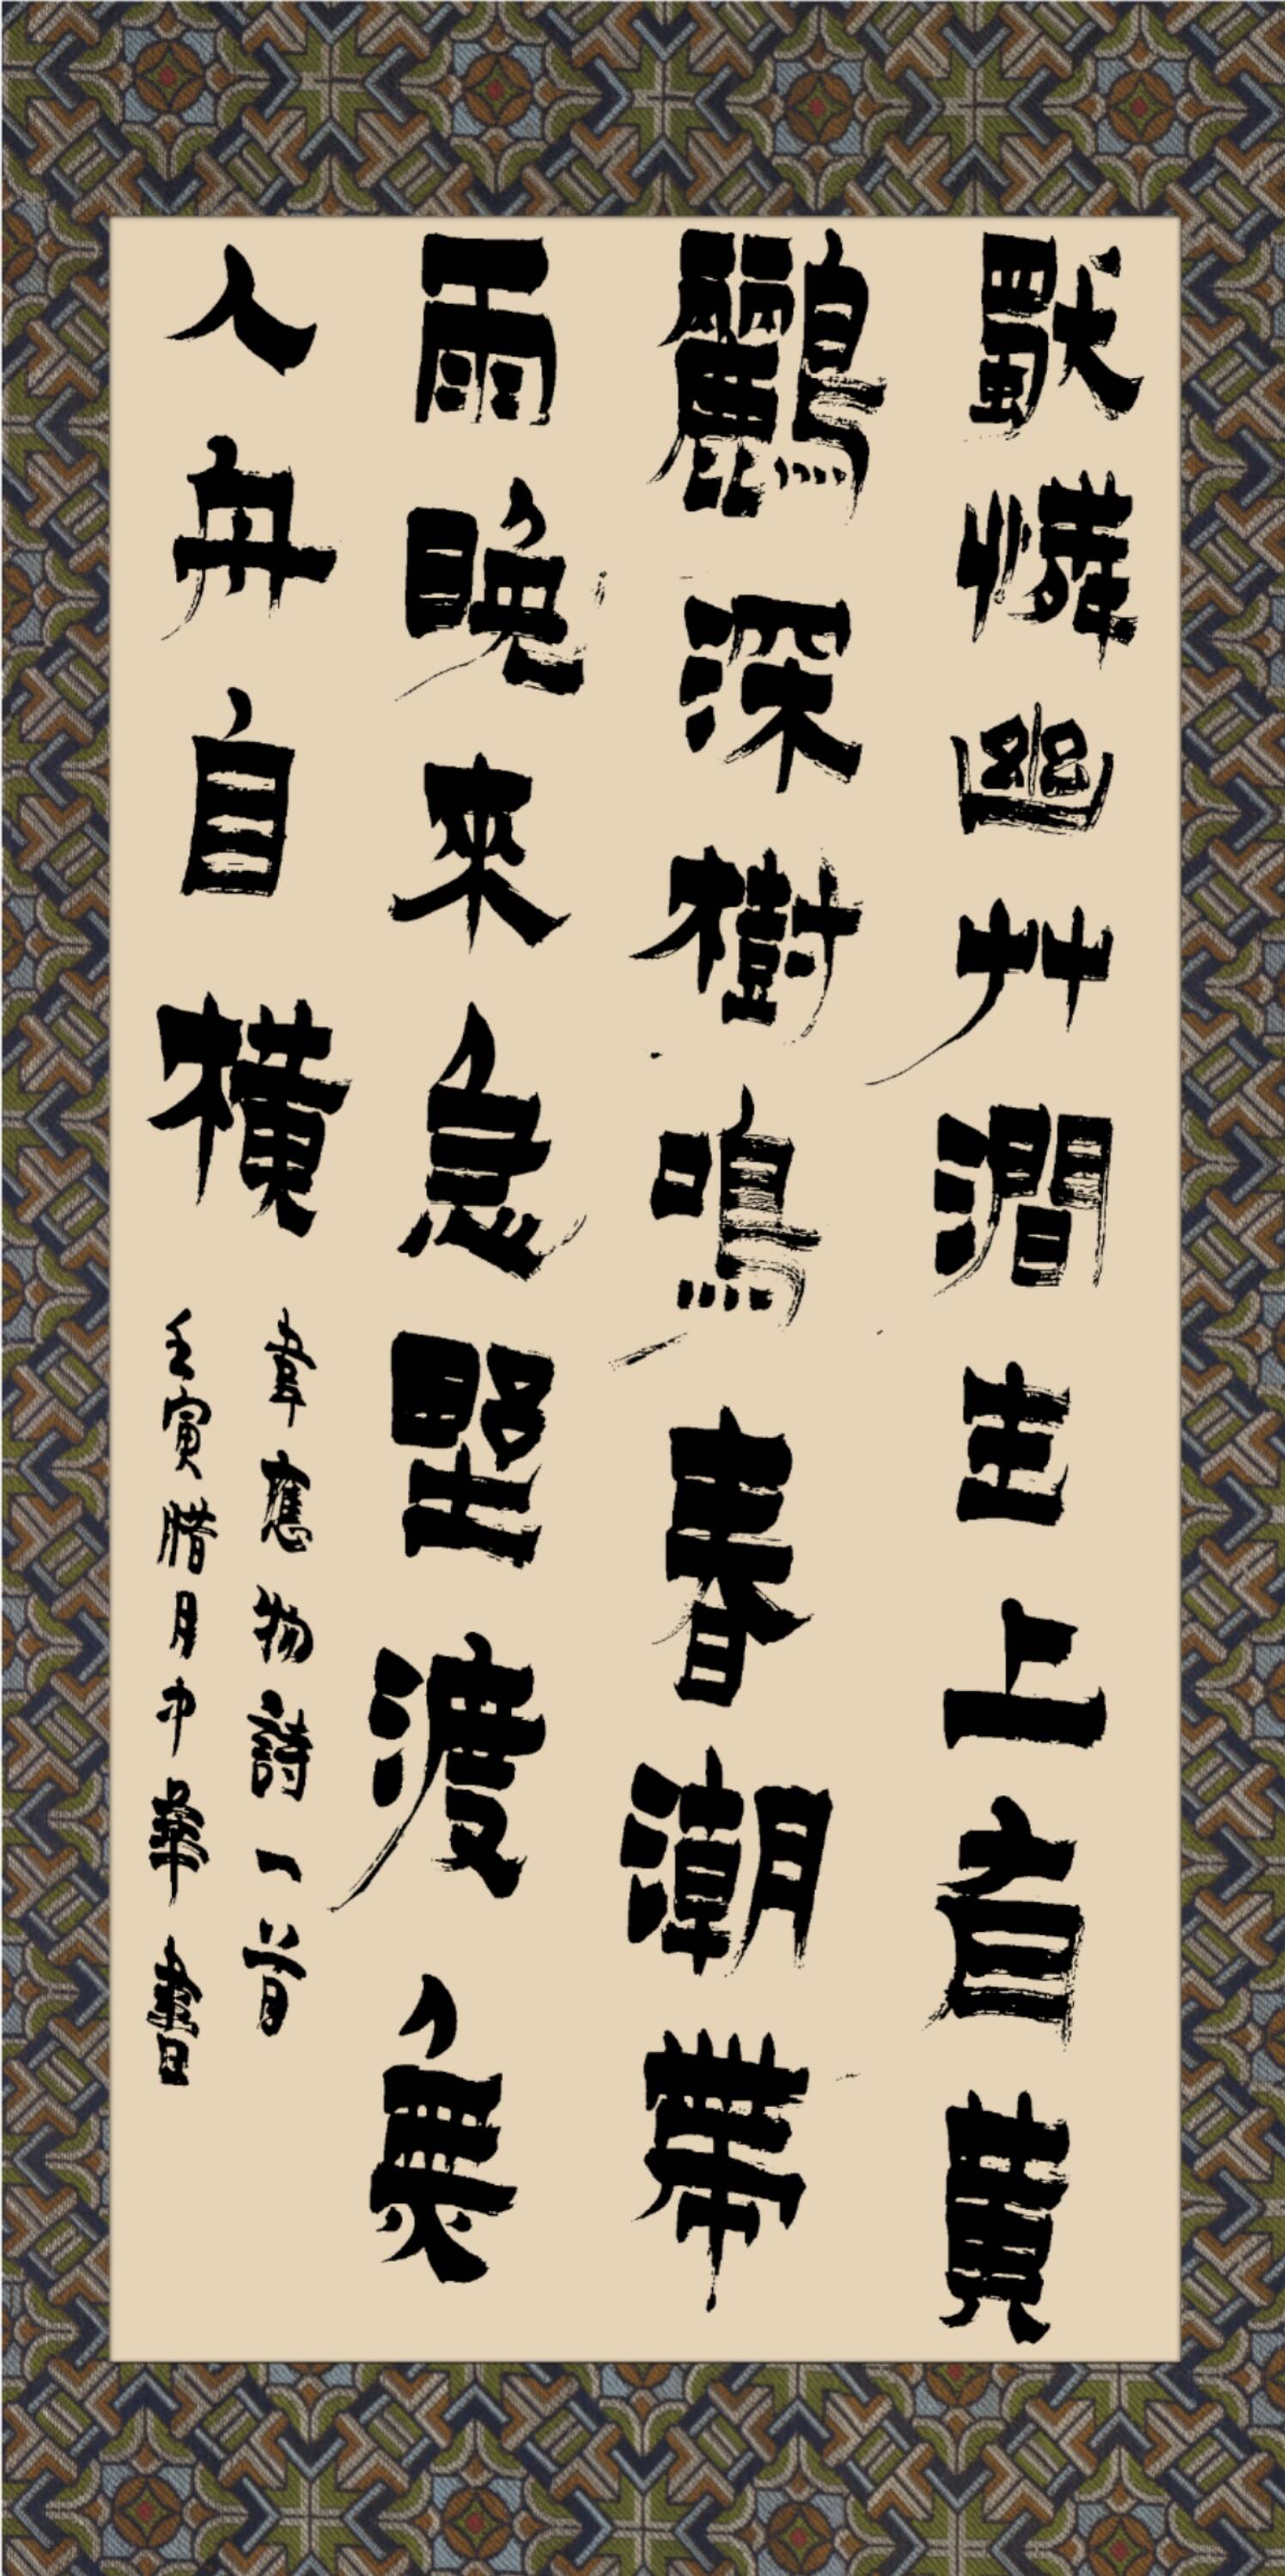 獨憐幽艸澗生上有黃
鸝深樹鳴春潮帶
雨晚來急野渡無
人舟自橫
韋應物詩一首
壬寅腊月中華書